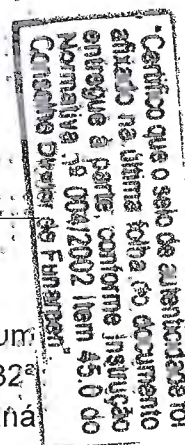 "Certifico que o selo de autenticidade foi
afixado na última folha do documento
entregue à parte, conforme Instrução
Normativa nº 004/2002 Item 45.0 do
Conselho Diretor do Funarpen"
um
32ª
ná